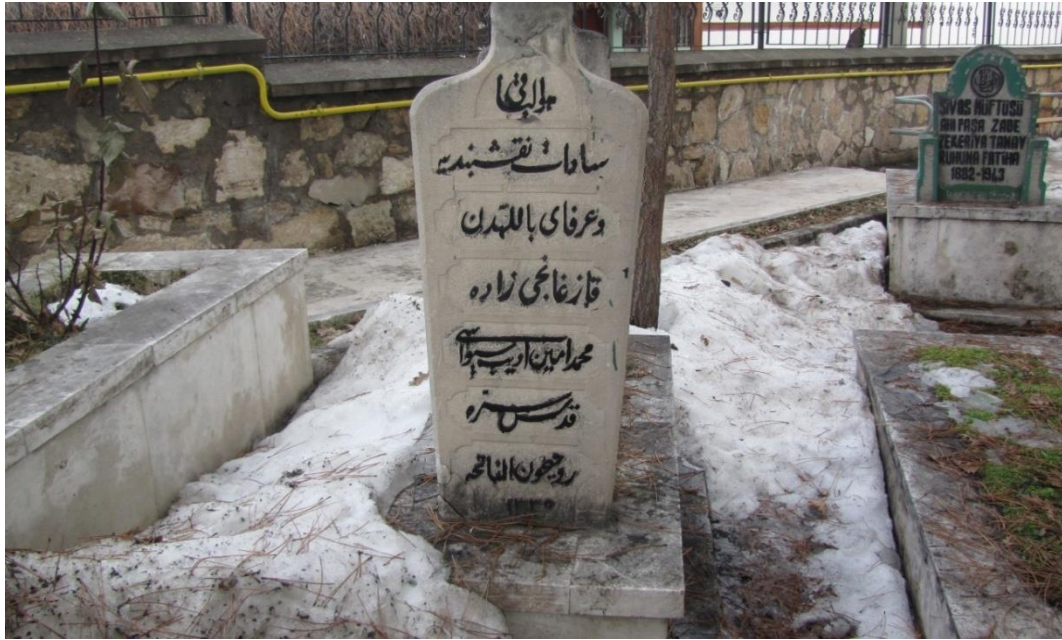 هو الباقی
سادات نقشبندیه
و عرفای باللهدن
قازغانجی زاده
محمد امین ادیب سیواسی
قدس سره
روحیچون الفاتحه
SİVAS MÜFTÜSÜ
ZADE
ZEKERİYA TANAY
RUHUNA FATİHA
1882-1943